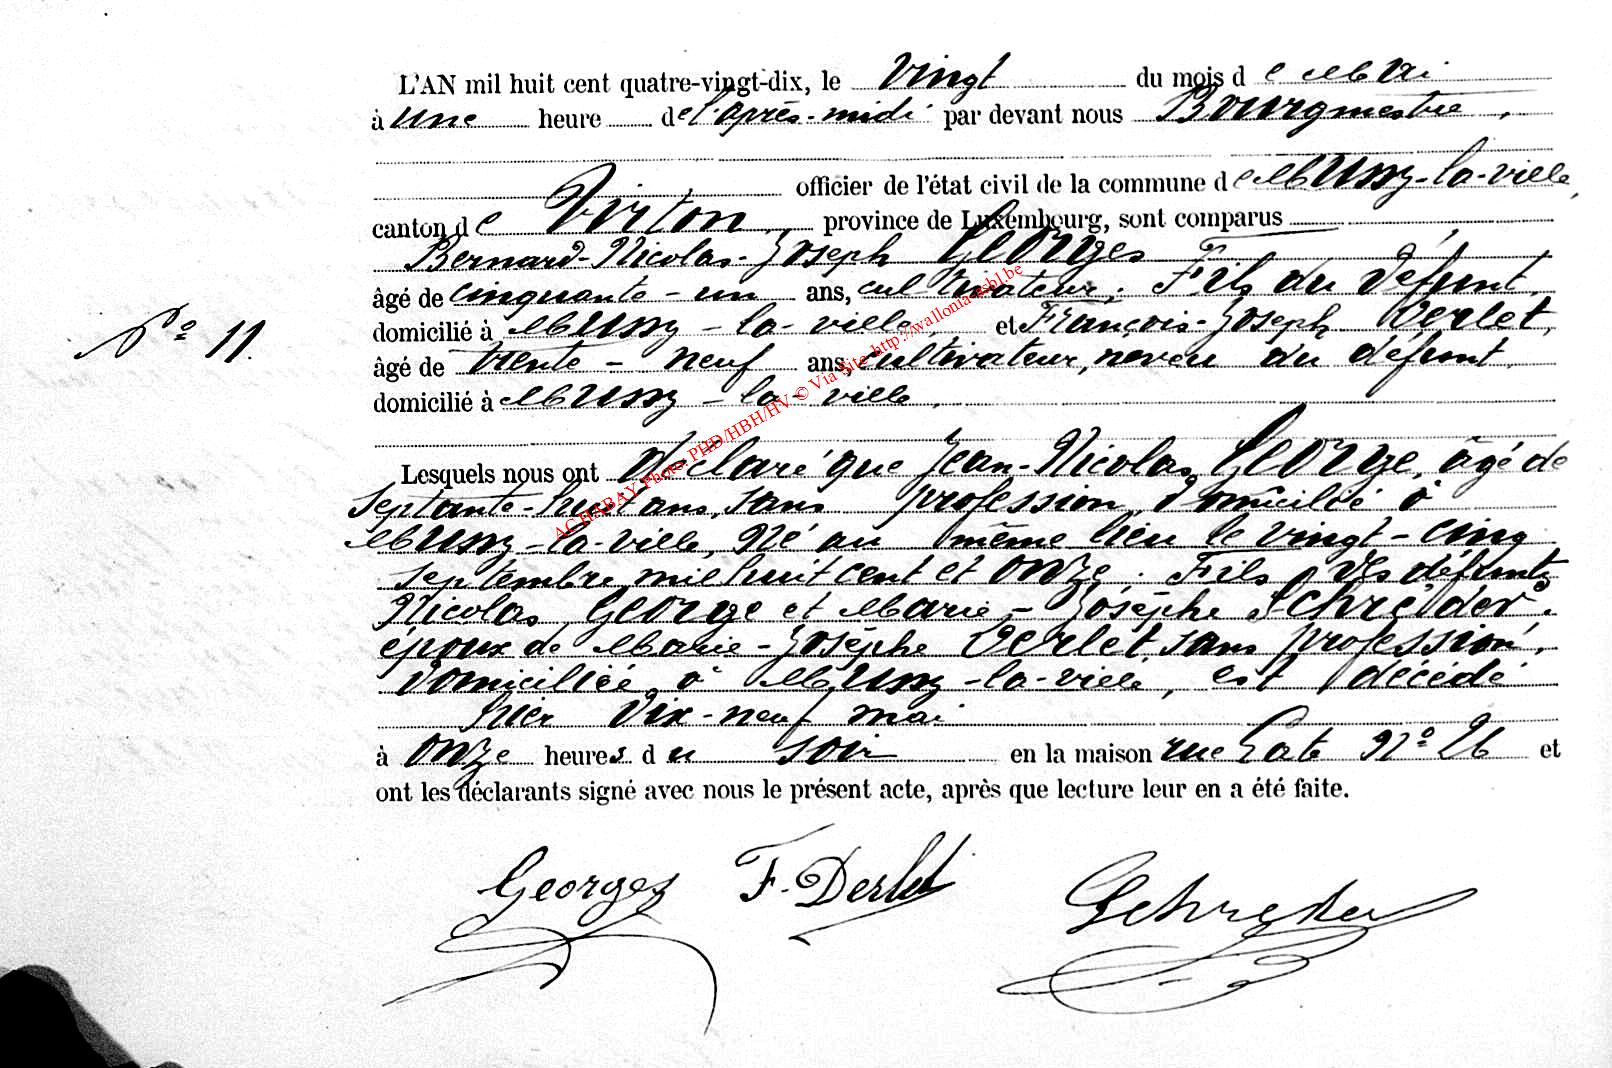 L'AN mil huit cent quatre-vingt-dix, le vingt du mois de Mai
à une heure de l'après-midi par devant nous Bourgmestre,
officier de l'état civil de la commune de Mussy-la-ville,
canton de Virton, province de Luxembourg, sont comparus
Bernard-Nicolas-Joseph Georges
âgé de cinquante-un ans, cultivateur, Fils du défunt,
domicilié à Mussy-la-ville, et François-Joseph Derlet,
N° 11.
âgé de trente-neuf ans, cultivateur, neveu du défunt,
domicilié à Mussy-la-ville,
Lesquels nous ont déclaré que Jean-Nicolas George, âgé de
septante-huit ans, sans profession, domicilié à
Mussy-la-ville, né au même lieu le vingt-cinq
septembre mil huit cent et onze, Fils des défunts
Nicolas George et Marie-Josèphe Schreider,
époux de Marie-Josèphe Derlet, sans profession,
domiciliée à Mussy-la-ville, est décédé
hier dix-neuf mai
à onze heures du soir en la maison rue N° 26 et
ont les déclarants signé avec nous le présent acte, après que lecture leur en a été faite.
Georges F. Derlet
AC HABAY Photo PHD/HBH/HV © Via Site http://wallonia-asbl.be